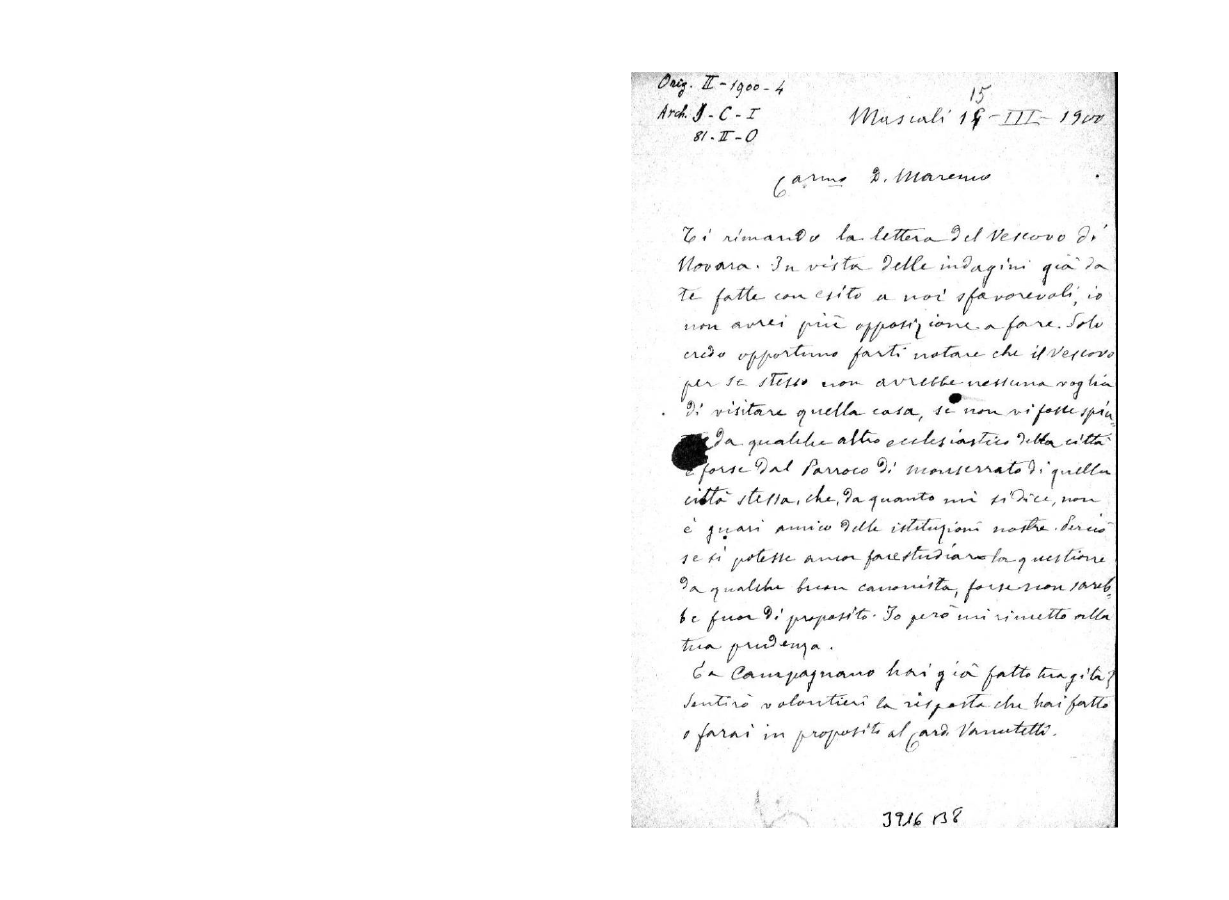 Orig. II-1900-4
Arch. J-C-I
81-II-O
15
Mascali 14-III-1900
Carmo D. Marenco
Ti rimando la lettera del Vescovo di
Novara. In vista delle indagini già da
te fatte con esito a noi sfavorevoli, io
non avrei più opposizione a fare. Solo
credo opportuno farti notare che il Vescovo
per se stesso non avrebbe nessuna voglia
di visitare quella casa, se non vi fosse spin-
da qualche altro ecclesiastico della città
e forse dal Parroco di Monserrato di quella
città stessa, che, da quanto mi si dice, non
è guari amico delle istituzioni nostre. Perciò
se si potesse ancor fare studiare la questione
da qualche buon canonista, forse non sareb-
be fuor di proposito. Io però mi rimetto alla
tua prudenza.
E a Campagnano hai già fatto tua gita?
Sentirò volontieri la risposta che hai fatto
o farai in proposito al Card. Vannutelli.
3916 B8